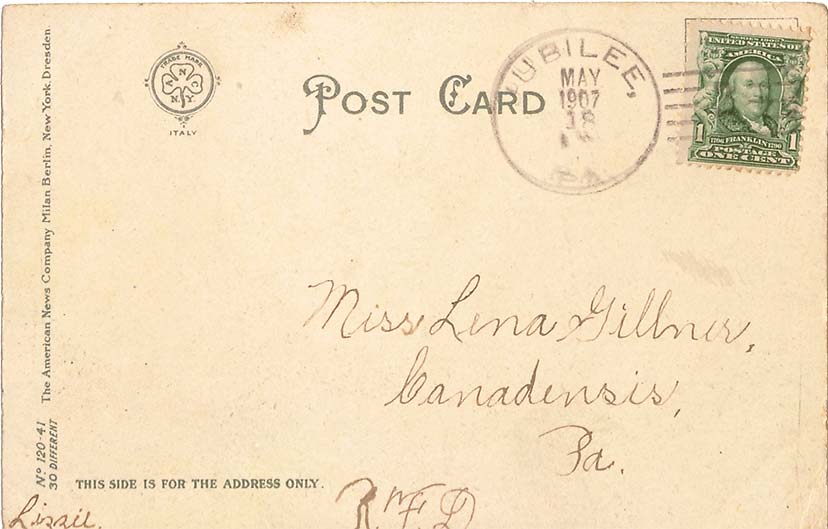 The American News Company Milan Berlin, New York. Dresden
Nº 120-41
30 DIFFERENT
TRADE MARK
A N C
N.Y.
ITALY
POST CARD
JUBILEE,
MAY
18
1907
PA.
SERIES 1902
UNITED STATES OF
AMERICA
1 1
1706 FRANKLIN 1790
POSTAGE
ONE CENT
Miss Lena Gillner,
Canadensis,
Pa.
THIS SIDE IS FOR THE ADDRESS ONLY.
R.F.D
Lizzie.